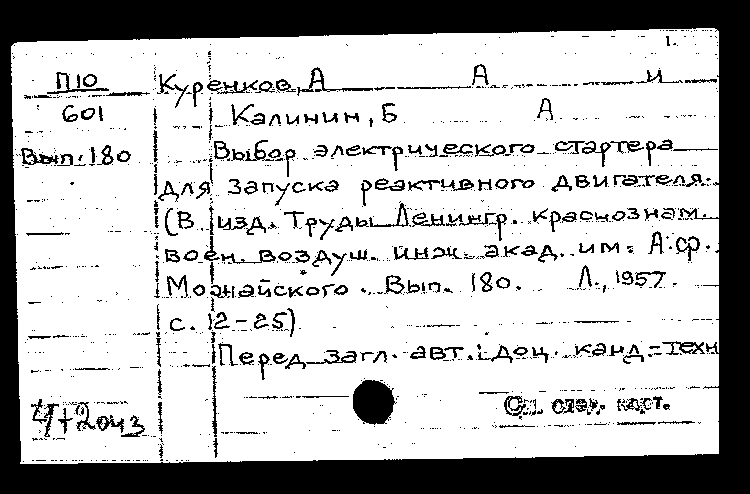 1.
П10 Куренков, А А и
601 Калинин, Б А
Вып. 180 Выбор электрического стартера
для запуска реактивного двигателя.
(В изд. Труды Ленингр. краснознам.
воен. воздуш. инж. акад. им. А.ф.
Можайского. Вып. 180. Л., 1957.
с. 12-25)
Перед загл. авт.: доц. канд-техн
См. след. карт.